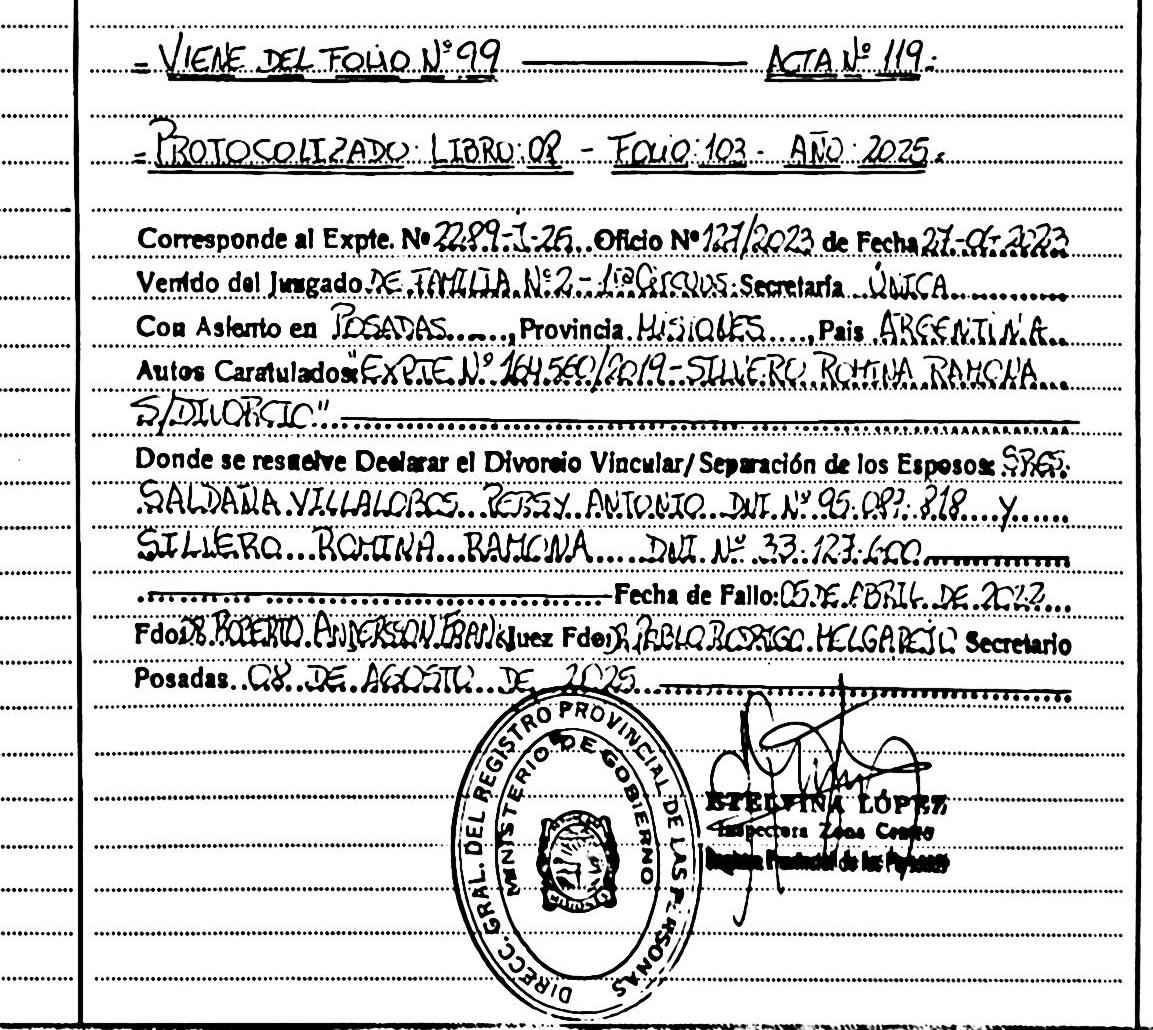 = VIENE DEL FOLIO Nº 99 ACTA Nº 119 =
= PROTOCOLIZADO: LIBRO: 02 - FOLIO: 103 - AÑO: 2025 =
Corresponde al Expte. Nº 2289-I-25 Oficio Nº 127/2023 de Fecha 27-01-2023
Venido del Juzgado DE FAMILIA Nº 2 - 1ra Secretaría ÚNICA
Con Asiento en POSADAS, Provincia MISIONES, Pais ARGENTINA
Autos Caratulados: "EXPTE Nº 164560/2019 - SILVERO ROMINA RAMONA
S/DIVORCIO"
Donde se resuelve Declarar el Divorcio Vincular/Separación de los Esposos: SRES.
SALDAÑA VILLALOBOS PERSY ANTONIO DNI Nº 95.087.818 Y
SILVERO ROMINA RAMONA DNI Nº 33.127.600
Fecha de Fallo: 05 DE ABRIL DE 2022
Fdo: DR. ROBERTO ANDERSON FRANK Juez Fdo: DR. PABLO RODRIGO MELGAREJO Secretario
Posadas 08 DE AGOSTO DE 2025
DIRECC. GRAL. DEL REGISTRO PROVINCIAL DE LAS PERSONAS
MINISTERIO DE GOBIERNO
ETELVINA LÓPEZ
Inspectora Zona Centro
Registro Provincial de las Personas